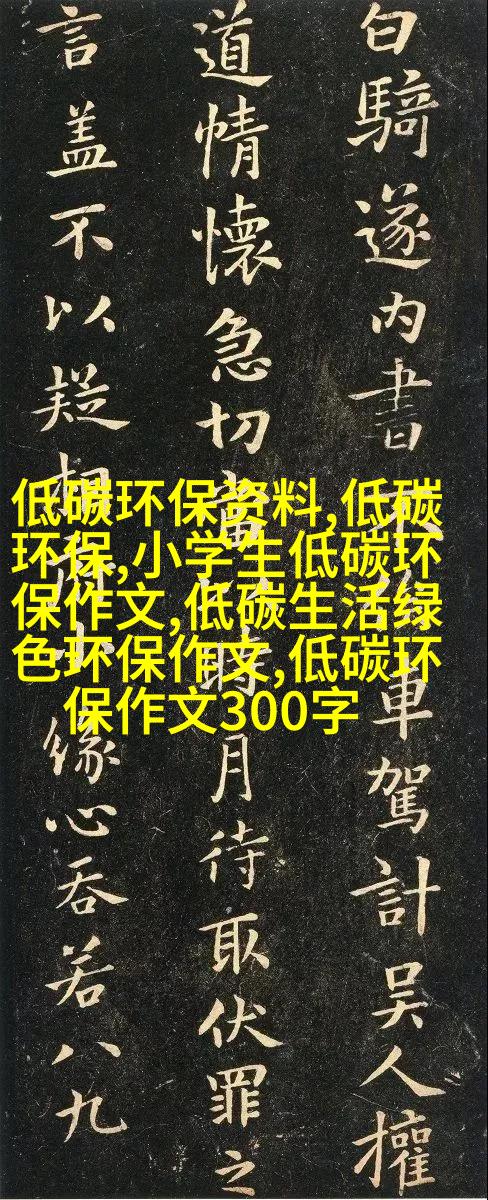 白騎遂內書不車駕計吳人權
道情懷急切當時月待取伏罪之
言蓋不以疑相緣心吞若八九
低碳环保资料,低碳
环保,小学生低碳环
保作文,低碳生活绿
色环保作文,低碳环
保作文300字